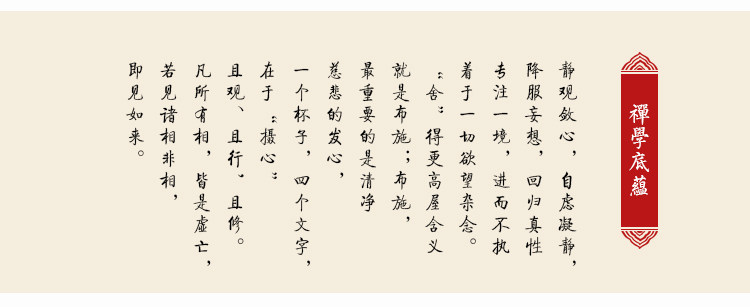 禪學底蘊
静观敛心，自虑凝静，
降服妄想，回归真性
专注一境，进而不执
着于一切欲望杂念。
“舍”得更高屋含义
就是布施；布施，
最重要的是清净
慈悲的发心，
一个杯子，四个文字，
在于“摄心”
且观、且行、且修。
凡所有相，皆是虚亡，
若见诸相非相，
即见如来。